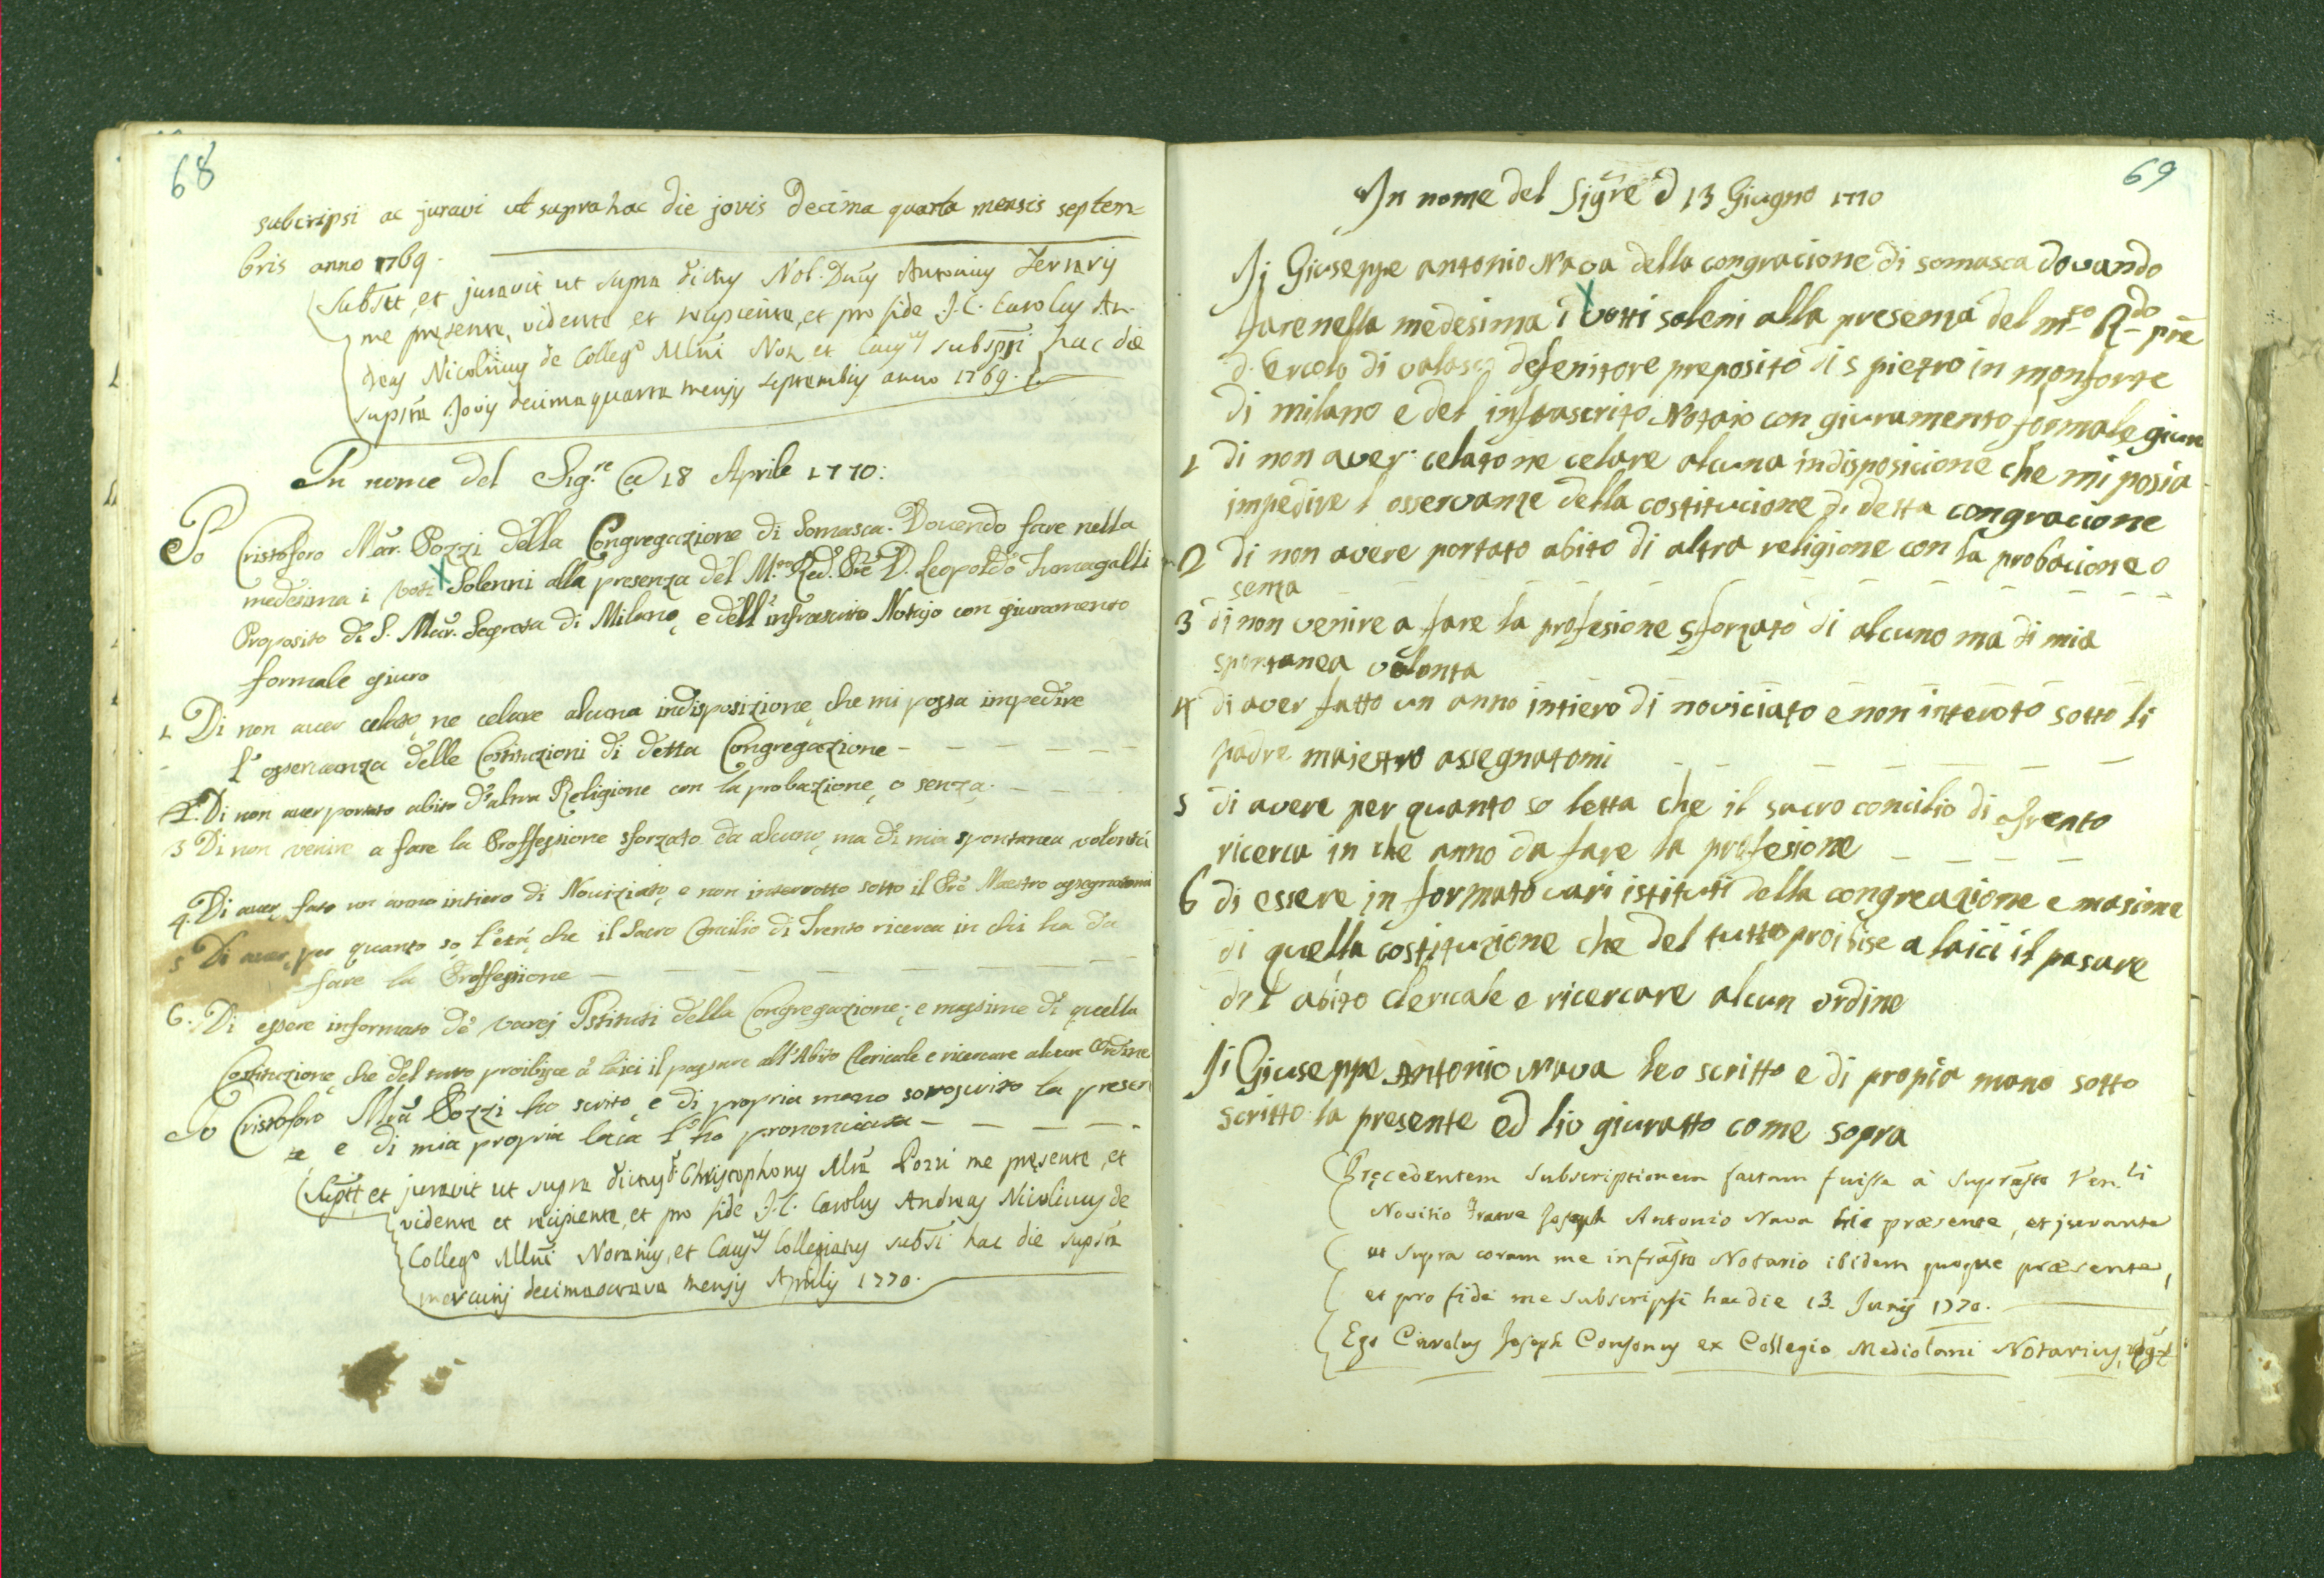 68
subcripsi ac juravi ut supra hac die jovis Decima quarta mensis septem=
bris anno 1769.
Subs̃tt, et juravit ut supra dictus Nob. Dñus Antonius
me presente, vidente et recipiente, et pro fide J. C. Carolus An-
dreas Nicolinus de Colleg.º Mlñi Not. et Caus.us subs̃pri hac die
supr̃a Jovis decimaquarta mensis septembris anno 1769.
In nome del Sig.re a 18 Aprile 1770:
Io Cristoforo Mar. Pozzi della Congregazione di Somasca. Dovendo fare nella
medesima i voti Solenni alla presenza del M.to Red. Prẽ D. Leopoldo Fumagalli
Proposito di S. Mar. Segreta di Milano, e dell'infrascritto Notajo con giuramento
formale giuro
1 Di non aver celato, ne celare alcuna indisposizione, che mi possa impedire
l'osservanza delle Costituzioni di detta Congregazione - - - - - -
2. Di non aver portato abito d'altra Religione con la probazione, o senza. - - - -
3 Di non venire a fare la Proffessione sforzato da alcuno, ma di mia spontanea volontà
4. Di aver fato un anno intiero di Noviziato, e non interrotto sotto il Prẽ Maestro assegnatomi
5 Di aver, per quanto sò, l'età, che il Sacro Concilio di Trento ricerca in chi ha da
fare la Proffessione - - - -
6. Di essere informato de' varj Istituti della Congregazione; e massime di quella
Costituzione, che del tutto proibisce a' laici il passare all'Abito Clericale e ricercare alcun Ordine
Io Cristoforo Mar̃a Pozzi ho scrito, e di propria mano sotoscrito la presen
te e di mia propria l'ho prononciata - - - -
Subs̃tt, et juravit ut supra dictus Christophorus Mrã Pozzi me presente, et
vidente et recipiente, et pro fide J. C. Carolus Andreas Nicolinus de
Colleg.º Mlñi Notarius, et Caus.us Collegiatus subs̃i hac die supr̃a
mercurij decimaoctava mensis Aprilis 1770.
69
In nome del Sigrẽ d 13 Giugno 1770
Ji Giuseppe antonio Nava della congracione di somasca dovando
fare nella medesima i votti soleni alla presenza del m.to R.do prẽ
d. Ercole di valasc defenitore preposito di s pietro in monforte
di milano e del infrascrito Notaio con giuramento formale giuro
1 di non aver celato ne celare alcuna indisposicione che mi posia
impedire l osservanze della costitucione di detta congracione
2 di non avere portato abito di altra religione con la probacione o
senza - - - - - -
3 di non venire a fare la profesione sforzato di alcuno ma di mia
spontanea volonta - - - -
4 di aver fatto un anno intiero di noviciato e non interoto sotto li
padre maiestro assegnatomi - - - - - -
5 di avere per quanto so letta che il sacro concilio di trento
ricerca in che anno da fare la profesione - - - -
6 di essere in formato vari istituti della congreazione e masime
di quella costituzione che del tutto proibise a laici il pasare
del abito clericale e ricercare alcun ordine
Ji Giuseppe Antonio Nava heo scritto e di propia mano sotto
scritto la presente ed lio giuratto come sopra
Precedentem subscriptionem factam fuisse à supras̃to Ven.li
Novitio Fratre Joseph Antonio Nava hic præsente, et jurante
ut supra coram me infras̃to Notario ibidem quoque præsente,
et pro fide me subscripsi hac die 13. Junij 1770.
Ego Carolus Joseph Consonus ex Collegio Mediolani Notarius,